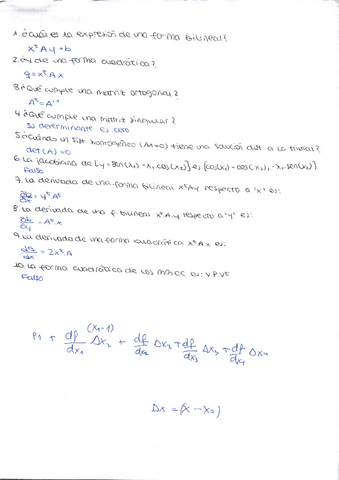 1. ¿Cuál es la expresión de una forma bilineal?
xᵗAy = b
2. ¿Y de una forma cuadrática?
q = xᵗAx
3. ¿Qué cumple una matriz ortogonal?
Aᵗ = A⁻¹
4. ¿Qué cumple una matriz singular?
Su determinante es cero
5. ¿Cuándo un sist. homogéneo (Ax=0) tiene una solución dist. a la trivial?
det(A) = 0
6. La jacobiana de [y = sen(x₁) - x₁ cos(x₂)] es [cos(x₁) - cos(x₂), -x₁ sen(x₂)]
Falso
7. La derivada de una forma bilineal xᵗAy respecto a 'x' es:
∂b/∂x = yᵗAᵗ
8. La derivada de una f. bilineal xᵗAy respecto a 'y' es:
∂b/∂y = Aᵗx
9. La derivada de una forma cuadrática xᵗAx es:
dq/dx = 2xᵗA
10. La forma cuadrática de los MMCC es: VPVᵗ
Falso
(x₁-1)
P1 + df/dx₁ Δx₂ + df/dx₂ Δx₂ + df/dx₃ Δx₃ + df/dx₄ Δx₄
Δx = (x - x₀)